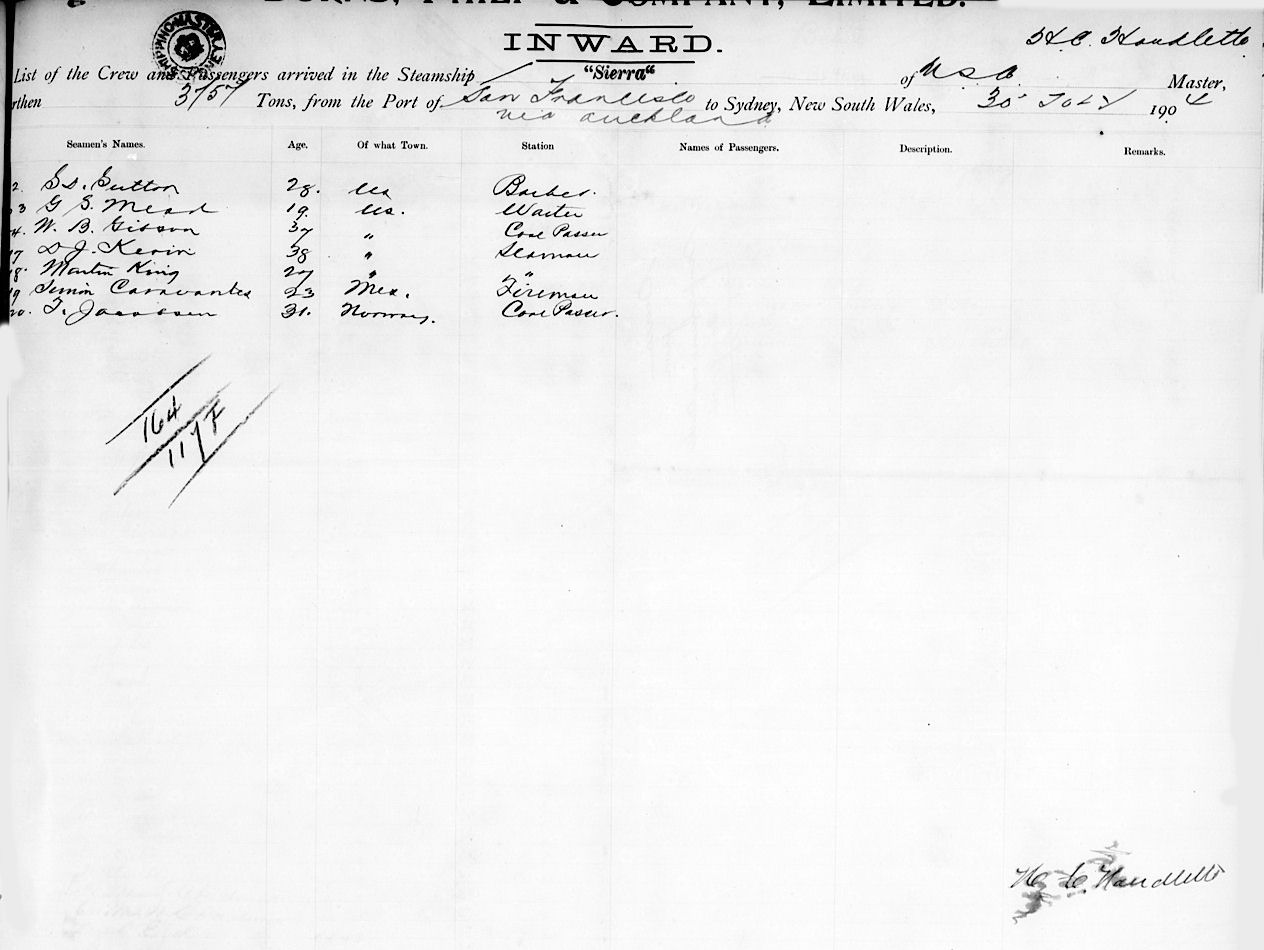 BURNS, PHILP & COMPANY, LIMITED.
INWARD.
H.C. Houdlette
List of the Crew and Passengers arrived in the Steamship "Sierra" of USA Master,
rthen 3757 Tons, from the Port of San Francisco to Sydney, New South Wales, 30 July 1904
via Auckland
Seamen's Names. Age. Of what Town. Station Names of Passengers. Description. Remarks.
2. Sutton 28. US Barber.
3 G S Mead 19. US. Waiter
4. W. B. Gibson 37 " Coal Passer
17 D. J. Kevin 38 " Seaman
18. Martin King 27 " "
19 Simón Caravantes 23 Mex. Fireman
20. T. Jacobsen 31. Norway. Coal Passer.
164
117 F
H. C. Houdlette